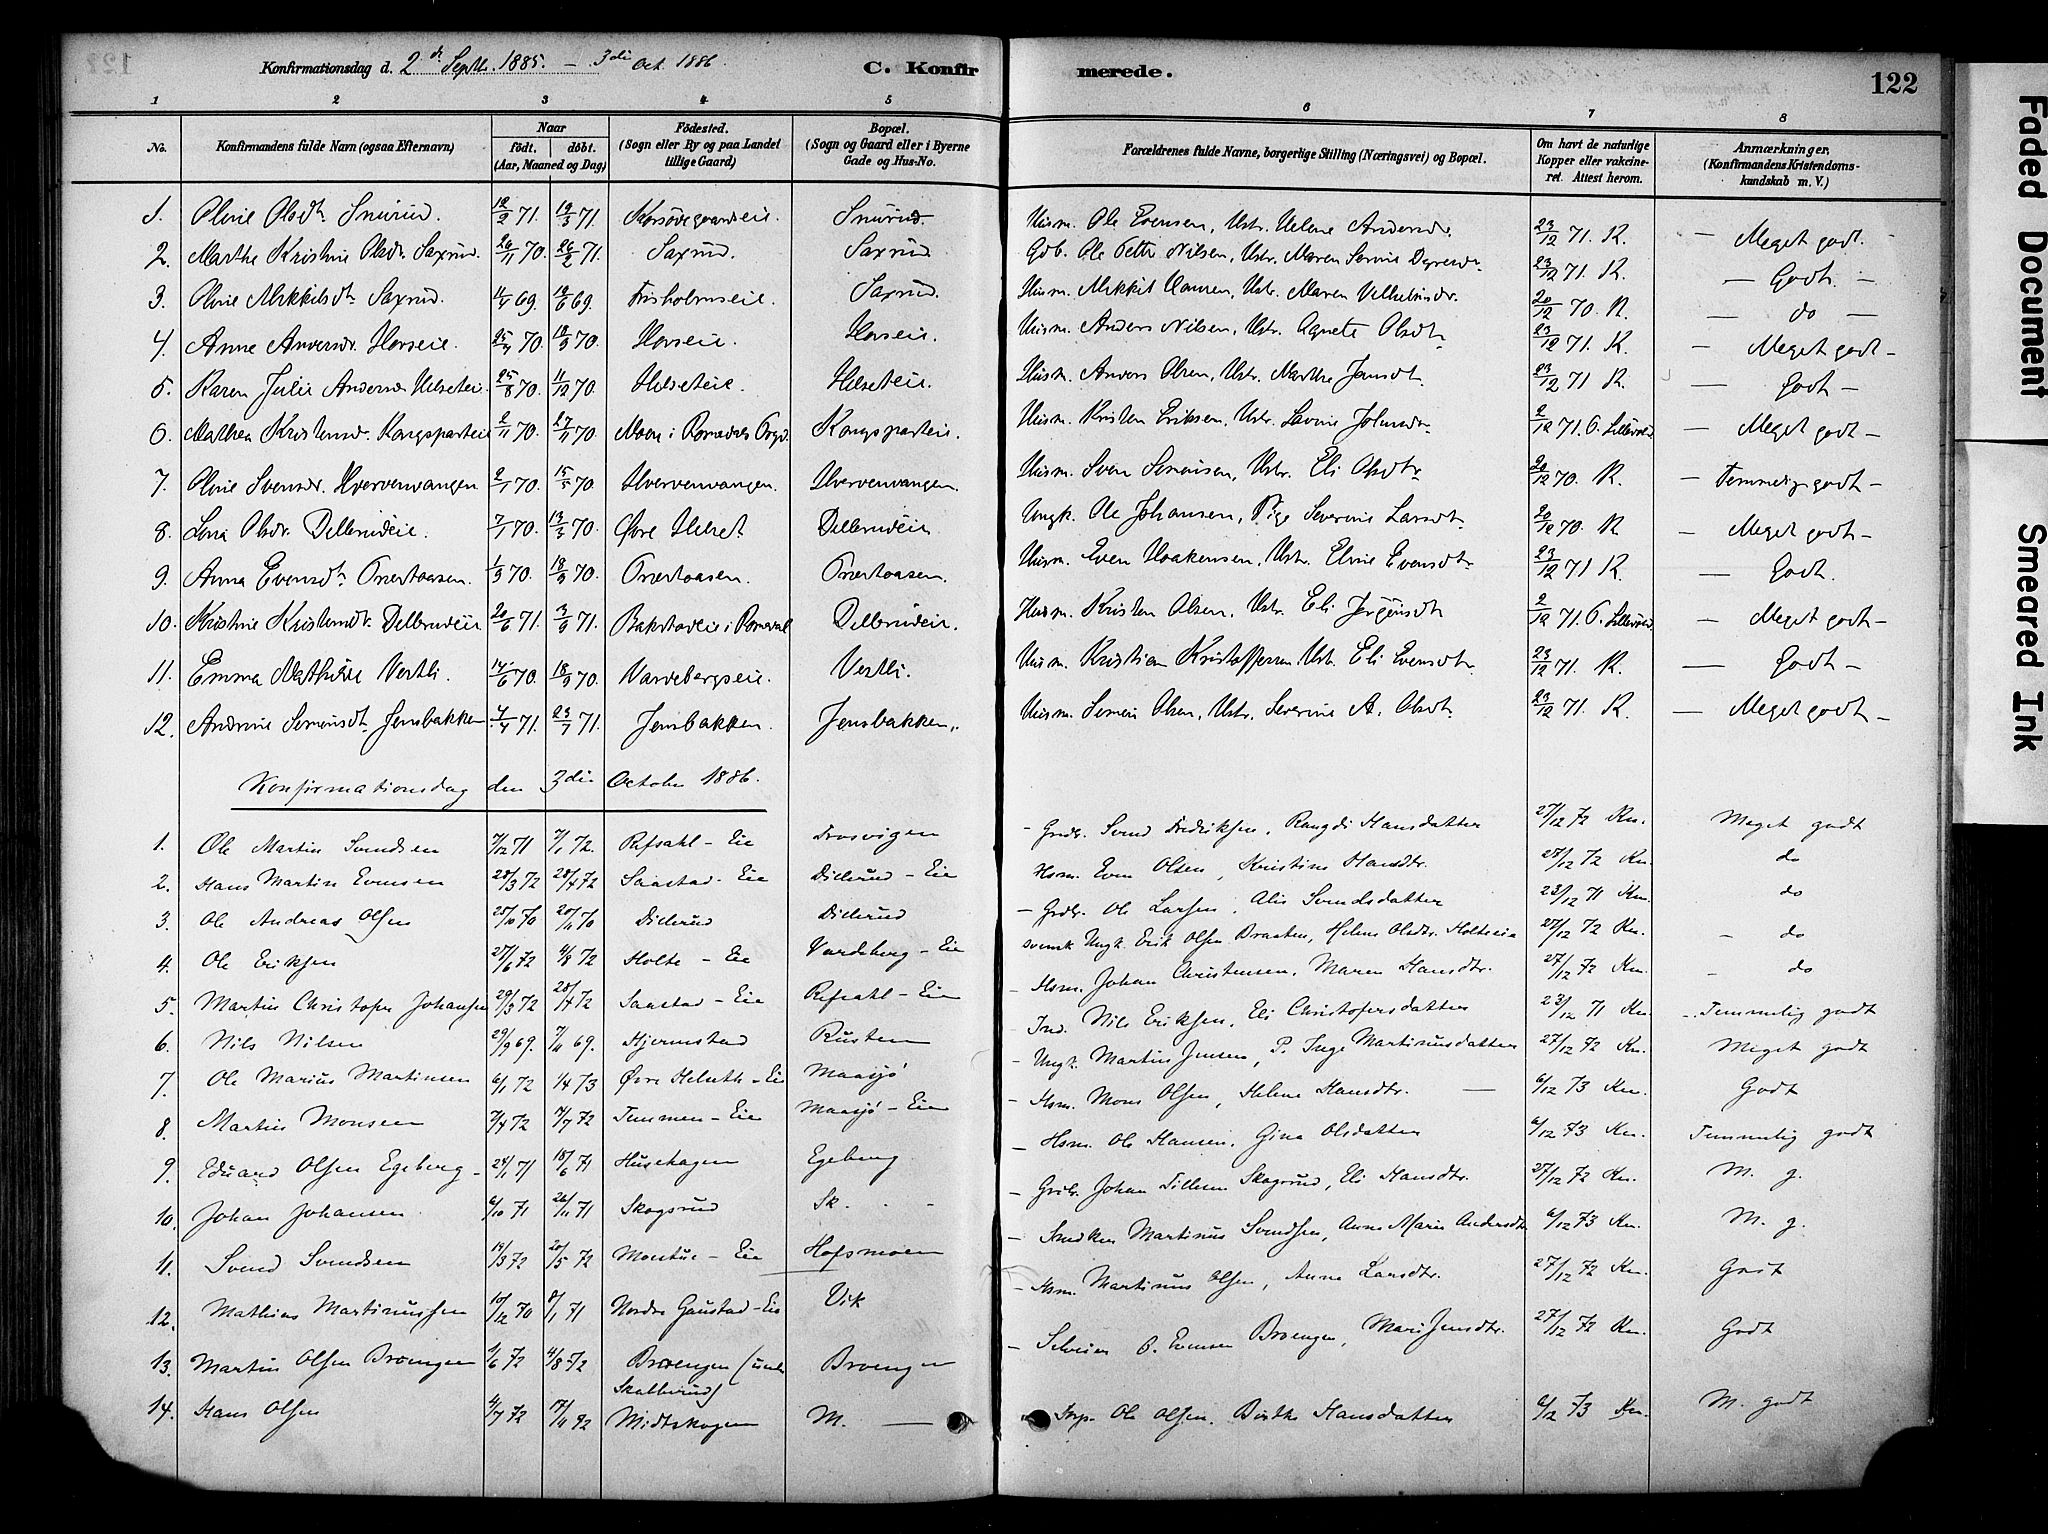 Konfirmationsdag d. 2de Septbr. 1885. – 3die Oct. 1886.
C. Konfirmerede.
122
1 2 3 4 5 6 7 8
No.
Konfirmandens fulde Navn (ogsaa Efternavn)
Naar
födt. döbt.
(Aar, Maaned og Dag)
Födested.
(Sogn eller By og paa Landet
tillige Gaard)
Bopæl.
(Sogn og Gaard eller i Byerne
Gade og Hus-No.
Forældrenes fulde Navne, borgerlige Stilling (Næringsvei) og Bopæl.
Om havt de naturlige
Kopper eller vakcine-
ret. Attest herom.
Anmærkninger,
(Konfirmandens Kristendoms-
kundskab m. V.)
1. Oline Olsdtr Snurud. 12/2 71. 19/3 71. Snurud. Husm. Ole Evensen, Ustr. Helene Andersdr. 23/12 71. K. – Meget godt.
2. Marthe Kristine Olsdr. Saxrud. 26/11 70. 26/2 71. Saxrud. Saxrud. Gdb. Ole Petter Nilsen, Ustr. Maren 23/12 71. K. – Godt. –
3. Oline Mikkelsdtr Saxrud. 69. 69. Frisholmseie. Saxrud. Husm. Mikkel Hansen, Ustr. Maren Vilhelmsdr. 20/12 70. K. – do –
4. Anne Andersdr. Horseie. 25/4 70. 18/9 70. Horseie. Horseie. Husm. Anders Nilsen, Ustr. Agnete Olsdtr 23/12 71. K. – Meget godt –
5. Karen Julie Andersdr Helseteie. 25/8 70. 11/12 70. Helseteie. Helseteie. Husm. Anders Olsen, Ustr. Marthe Jansdtr. 23/12 71 K. – Godt –
6. Mathea Kristensdr. Kongsparteie 2/11 70. 27/11 70. Moen i Romedals Kongsparteie. Husm. Kristen Eriksen, Ustr. Lovise Johnsdr 2/12 71. O. Lillevold – Meget godt –
7. Oline Svensdr. Hvervenvangen 2/1 70. 15/5 70 Hvervenvangen. Hvervenvangen. Husm. Sven Simensen, Ustr. Eli Olsdtr. 20/12 70. K. – Temmelig godt –
8. Lina Olsdr. Dellerudeie. 7/1 70. 13/3 70. Øvre Helset Dellerudeie Ungk. Ole Johansen, Pige Severine Larsdtr. 20/12 70. K – Meget godt –
9. Anna Evensdtr 1/3 70. 18/9 70. Husm. Even Haakensen, Ustr. Eline Evensdtr 23/12 71 K. – Godt.
10. Kristine Kristensdr. Dellerudeie 20/6 71. 3/9 71. Bakstadeie i Romedal Dellerudeie. Husm. Kristen Olsen, Ustr. Eli Jörgensdtr 2/12 71 O. Lillevold – Meget godt –
11. Emma Mathilde Vestli. 14/6 70. 18/9 70. Vardebergseie. Vestli. Husm. Kristian Kristoffersen, Ustr. Eli Evensdtr 23/12 71. K. – Godt –
12. Andrine Simensdtr Jensbakken 7/4 71. 23/7 71. Jensbakken. Jensbakken. Husm. Simen Olsen, Ustr. Severine A. Olsdtr. 23/12 71. K. – Meget godt –
Konfirmationsdag den 3die October 1886.
1. Ole Martin Svendsen 7/12 71 7/1 72. Refsahl – Eie Drosvigen – Grdbr. Svend Fredriksen, Rangdi Hansdatter 27/12 72 Kn. Meget godt
2. Hans Martin Evensen 28/3 72 28/4 72 Saastad – Eie Diderud – Eie Hsm. Even Olsen, Kristine Hansdtr. 27/12 72 Kn. do
3. Ole Andreas Olsen 25/10 70 20/11 70 Diderud Diderud – Grdbr. Ole Larsen, Alis Svendsdatter 23/12 71 Kn. do
4. Ole Eriksen 27/6 72 4/8 72 Holte – Eie Vardeberg – Eie svensk Ungk. Erik Olsen Braaten, Helene Olsdtr. Holteeie 27/12 72 Kn. – do
5. Martin Christofer Johansen 29/3 72 28/4 72 Saastad – Eie Refsahl – Eie – Hsm. Johan Christensen, Maren Hansdtr. 27/12 72 Kn. – do
6. Nils Nilsen 29/9 69. 7/11 69. Hjermstad Rusten – Ind. Nils Eriksen, Eli Christofersdatter 23/12 71 Kn. – Temmelig godt
7. Ole Marius Martinsen 6/1 72 1/4 73 Øvre Helseth – Eie Maasjö – Ungk. Martin Jensen, P. Inge Martinusdatter 27/12 72 Kn. Meget godt
8. Martin Monsen 7/4 72 7/7 72 Temmen – Eie Maasjö – Eie – Hsm. Mons Olsen, Helene Hansdtr. – 6/12 73 Kn. Godt
9. Eduard Olsen Egeberg – 24/1 71 18/6 71 Husehagen Egeberg – Hsm. Ole Hansen, Gina Olsdatter 6/12 73 Kn. Temmelig godt
10. Johan Johansen. 6/10 71 26/11 71 Skogsrud Sk. – – Grdbr. Johan Tillesen Skogsrud, Eli Hansdtr. 27/12 72 Kn. M. g.
11. Svend Svendsen 14/3 72 20/5 72 Montue – Eie Hofsmoen – Snedker Martinus Svendsen, Anne Marie Andersdtr 6/12 73 Kn. M. g.
12. Mathias Martinussen 10/12 70 8/1 71 Nordre Gaustad – Eie Vik – Hsm. Martinus Olsen, Anne Larsdtr. 27/12 72 Kn. Godt
13. Martin Olsen Broengen 9/6 72 4/8 72 Broengen (under Skalberud) Broengen – Selveier O. Evensen Broengen, Mari Jensdtr. 27/12 72 Kn. Godt
14. Hans Olsen 4/7 72 17/11 92 Midtskogen M. — Ole Olsen, Birthe Hansdatter 6/12 73 Kn. M. godt
Faded Document
Smeared Ink